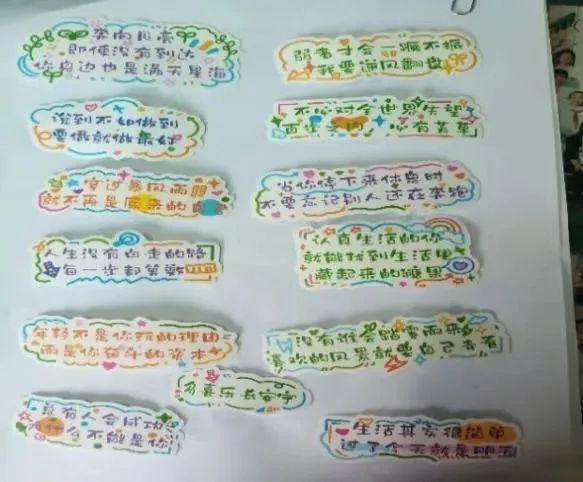 奔向月亮
即使没有到达
你身边也是满天星海
弱者才会一蹶不振
我要逆风翻盘
说到不如做到
要做就做最好
不必对全世界失望
百步之内 必有芳草
穿过暴风雨的
就不再是原来的
当你停下来休息时
不要忘记别人还在奔跑
人生没有白走的路
每一步都算数
认真生活的你
就能找到生活里
藏起来的糖果
年轻不是你玩的理由
而是你奋斗的资本
没有谁会
喜欢的风景就要自己去看
多喜乐 长安宁
总有人会成功
为什么不能是你
生活其实很简单
过了今天就是明天